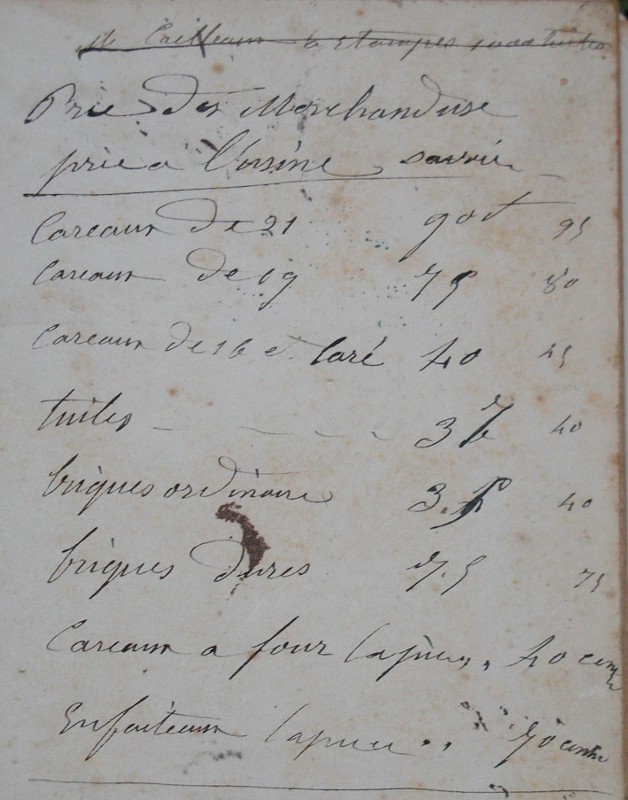 a Etampes
Prie des Marchanduse
prie a l'usine savoir
Careaux de 21 90 f 95
Careaux de 19 75 80
Careaux de 16 et Caré 40 45
tuiles - - - - 37 40
briques ordinaire 3.5 40
briques dures 7.5 75
Careaux a four la pièce, 40 cent
Enfaiteaux la piece .. 70 cent